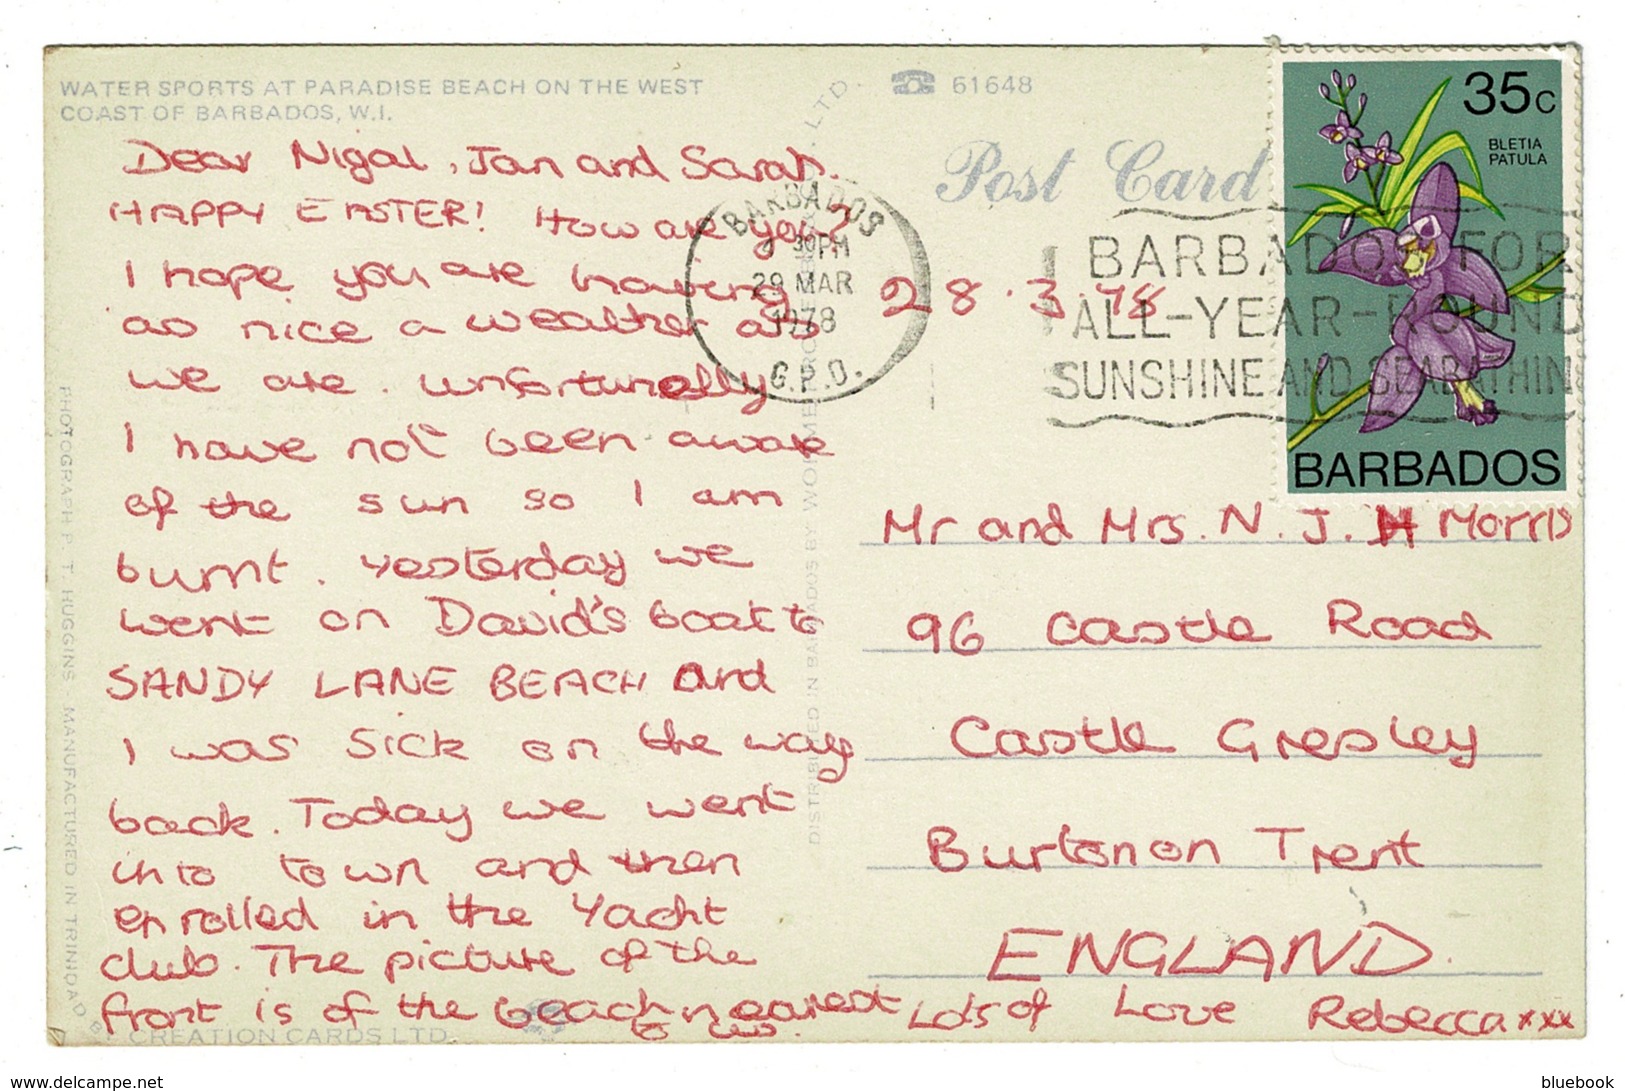 WATER SPORTS AT PARADISE BEACH ON THE WEST
COAST OF BARBADOS, W.I.
☎ 61648
Post Card
35c
BLETIA
PATULA
BARBADOS
BARBADOS
30PM
29 MAR
1978
G.P.O.
BARBADOS FOR
ALL-YEAR-ROUND
SUNSHINE AND SEABATHIN
Dear Nigal, Jan and Sarah.
HAPPY EASTER! How are you?
I hope you are having
as nice a weather as
we are. Unfortunelly
I have not been awair
of the sun so I am
burnt. Yesterday we
went on David's boat to
SANDY LANE BEACH and
I was sick on the way
back. Today we went
into town and then
enrolled in the Yacht
club. The picture of the
front is of the beach nearest
to us.
28.3.78
Mr and Mrs. N. J. Morris
96 Castle Road
Castle Gresley
Burton on Trent
ENGLAND.
Lots of Love Rebecca xxx
PHOTOGRAPH P. T. HUGGINS - MANUFACTURED IN TRINIDAD BY CREATION CARDS LTD.
DISTRIBUTED IN BARBADOS BY LTD.
www.delcampe.net
bluebook